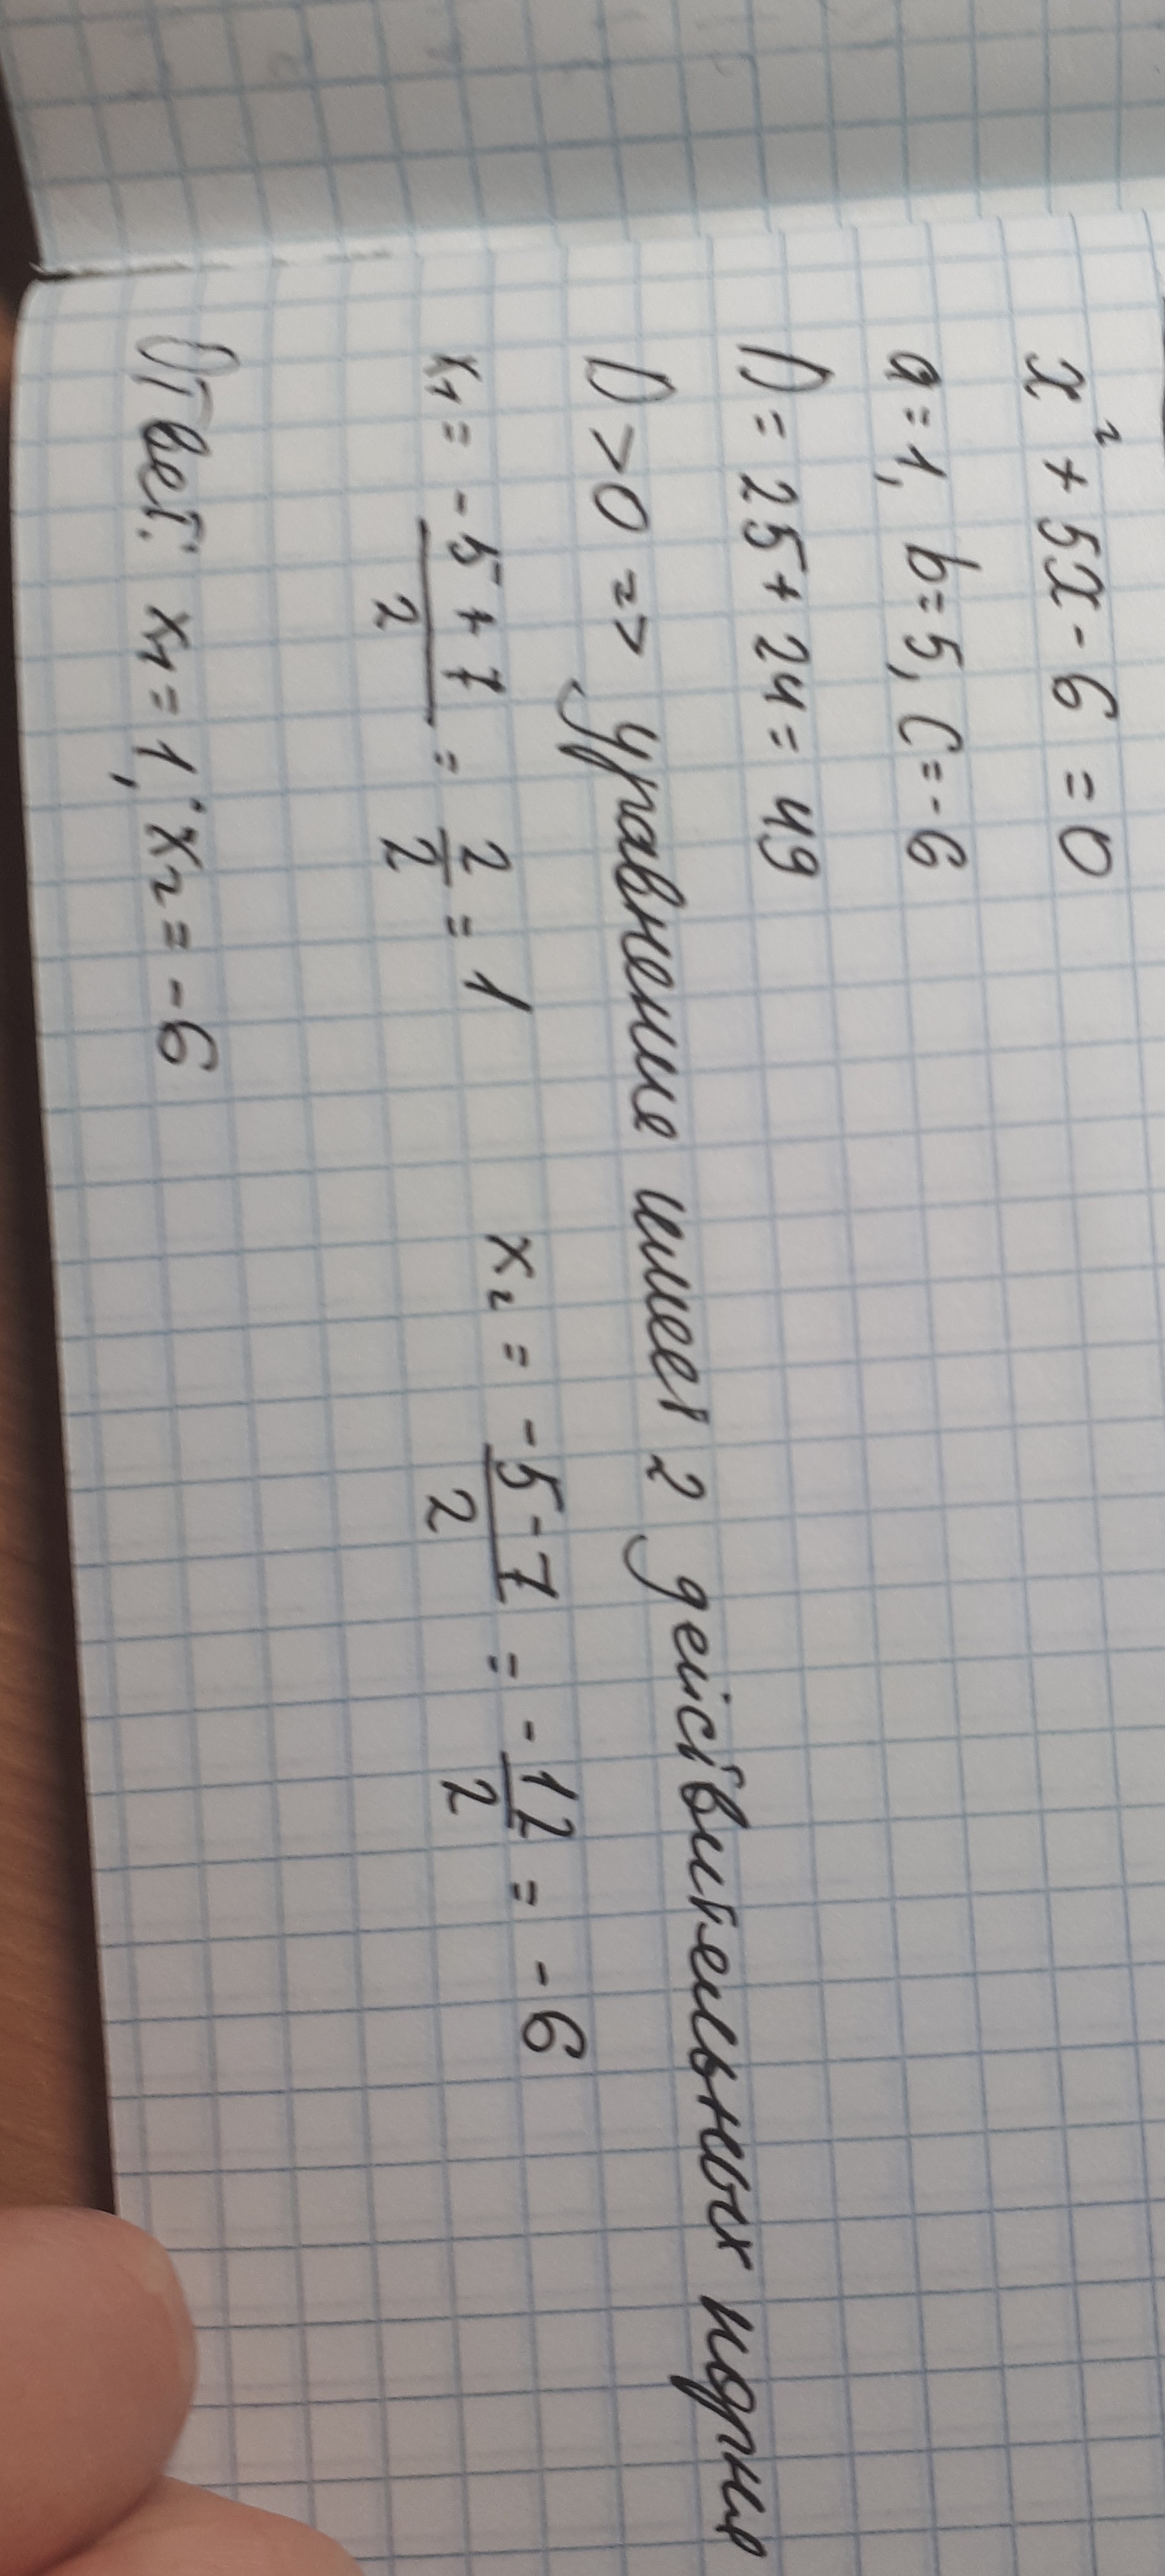 x² + 5x - 6 = 0
a = 1, b = 5, c = -6
D = 25 + 24 = 49
D > 0 => уравнение имеет 2 действительных корня
x₁ = (-5 + 7)/2 = 2/2 = 1 x₂ = (-5 - 7)/2 = -12/2 = -6
Ответ: x₁ = 1; x₂ = -6